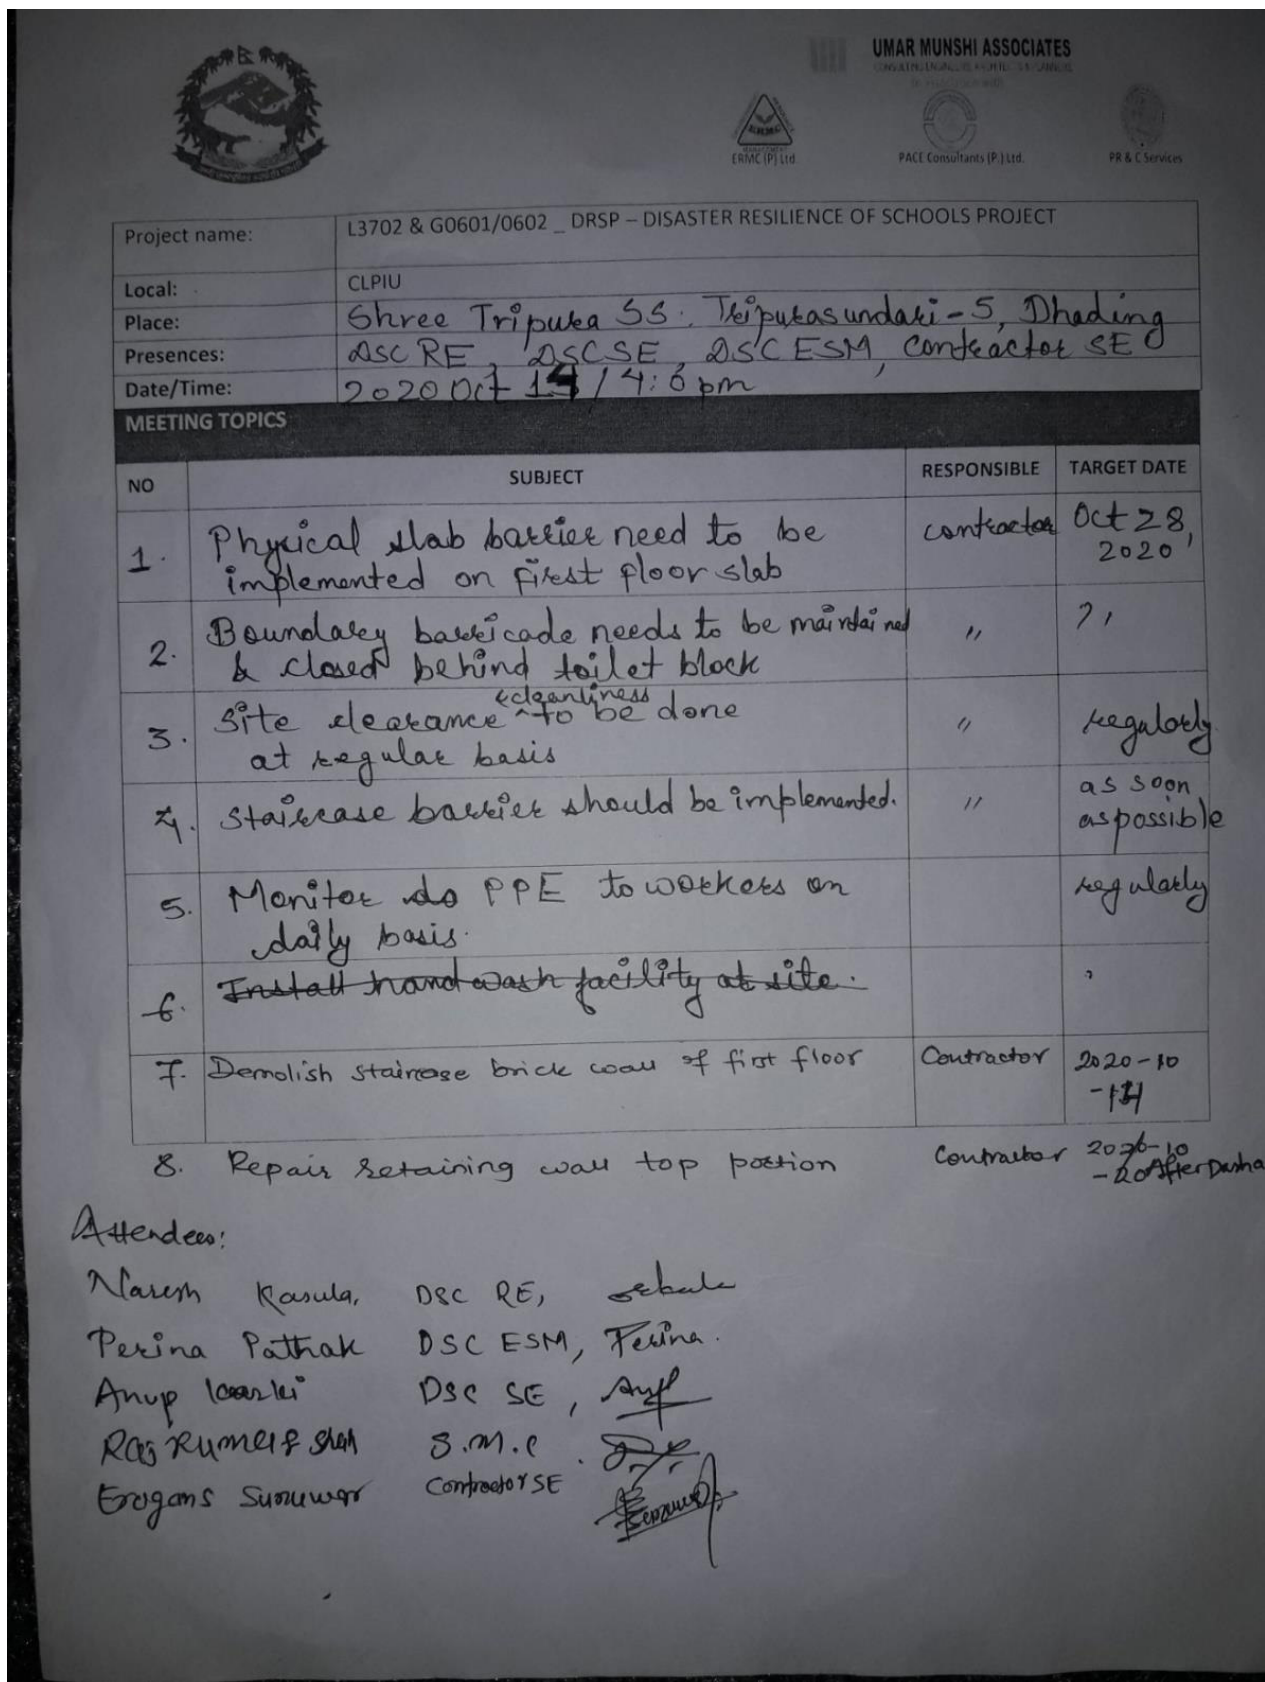 UMAR MUNSHI ASSOCIATES
ERMC
ERMC (P) Ltd
PACE Consultants (P.) Ltd.
PR & C Services
Project name: L3702 & G0601/0602 _ DRSP – DISASTER RESILIENCE OF SCHOOLS PROJECT
Local: CLPIU
Place: Shree Tripura SS. Tripurasundari-5, Dhading
Presences: DSC RE, DSC SE, DSC ESM, Contractor SE
Date/Time: 2020 Oct / 4:6 pm
MEETING TOPICS
NO SUBJECT RESPONSIBLE TARGET DATE
1. Physical slab barrier need to be contractor Oct 28,
implemented on first floor slab 2020
2. Boundary barricade needs to be maintained " "
& closed behind toilet block
3. Site clearance & cleanliness to be done " regularly
at regular basis
4. Staircase barrier should be implemented. " as soon
as possible
5. Monitor do PPE to workers on regularly
daily basis.
6. Install hand wash facility at site.
7. Demolish staircase brick wall of first floor Contractor 2020-10
8. Repair retaining wall top portion Contractor 2020-10
-20 After Dasha
Attendees:
Naresh Kasula, DSC RE,
Perina Pathak DSC ESM, Perina.
Anup Karki DSC SE, Anup
Raj Kumar Shah S.M.C.
Sunuwar Contractor SE